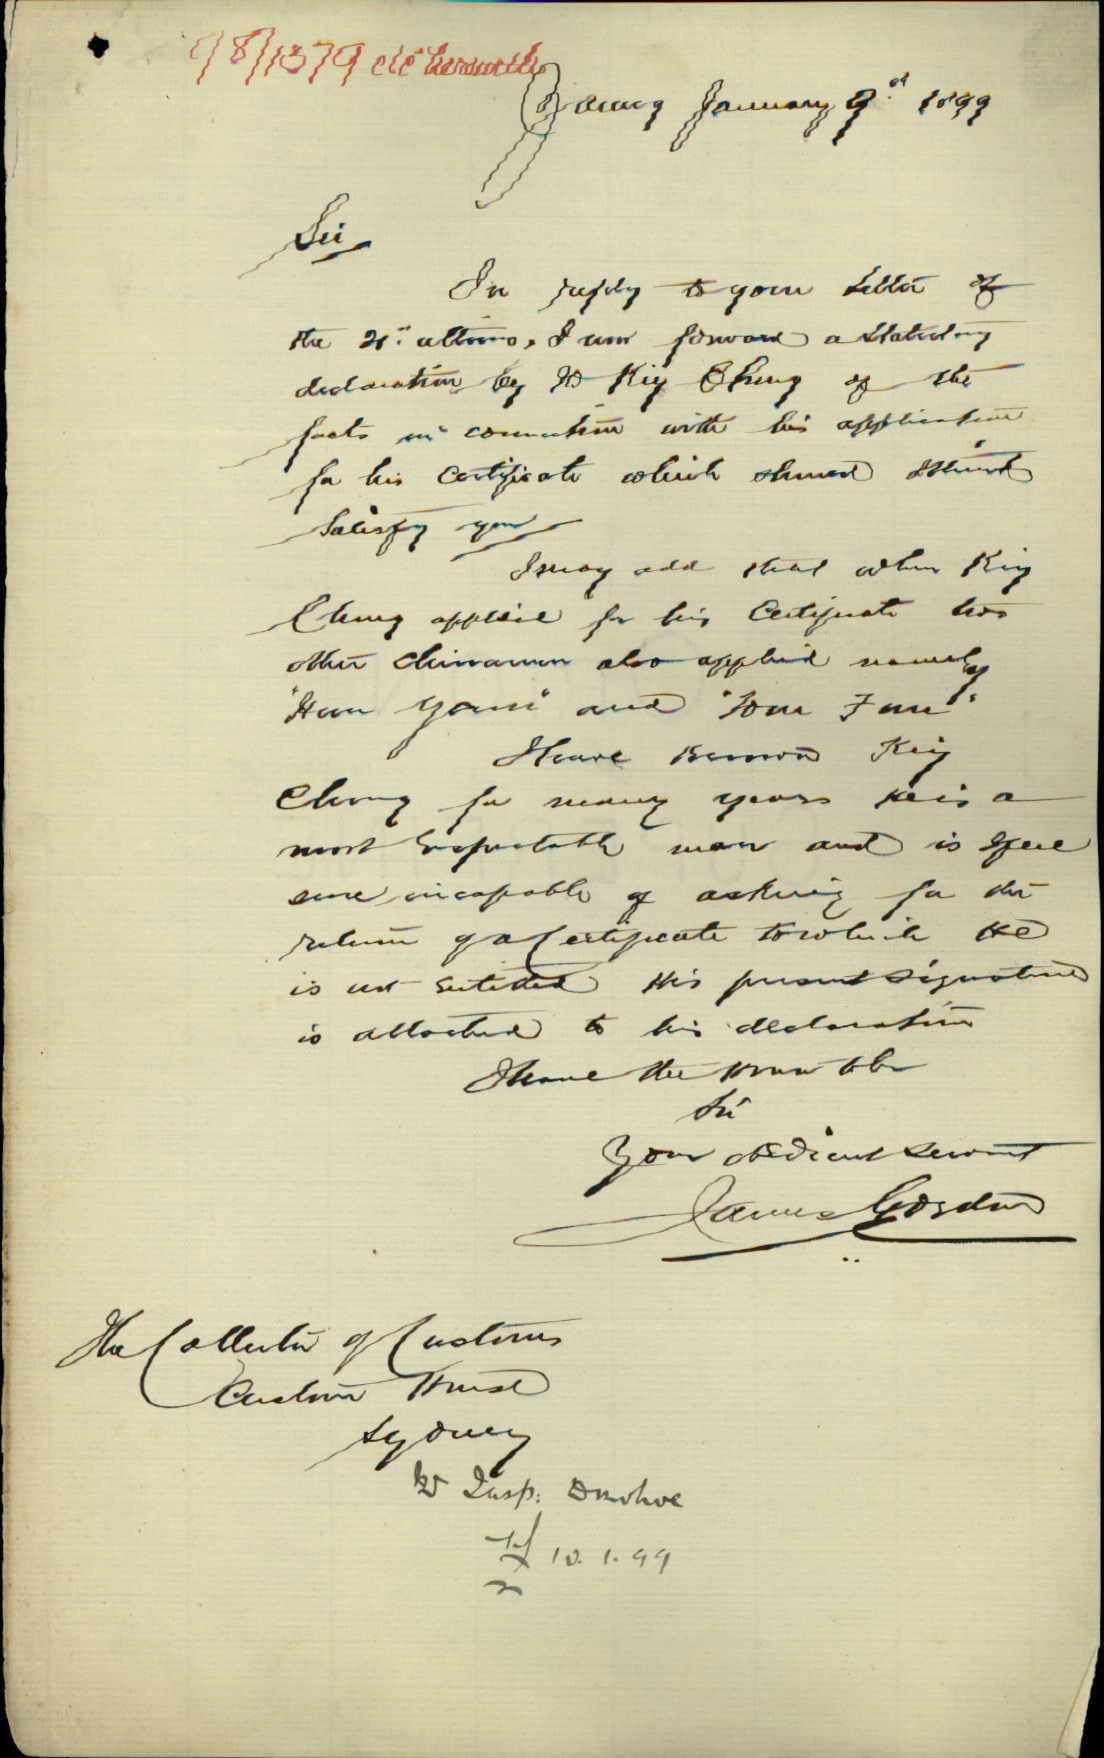 98/1379 etc herewith
Young January 9th 1899
Sir
In reply to your letter of
the 21st ultimo, I now forward a Statutory
declaration by Kig Chung of the
facts in connection with his application
for his Certificate which should I think
Satisfy you
I may add that when Kig
Chung applied for his Certificate two
other Chinamen also applied namely
"Hum Yaum" and
I have known Kig
Chung for many years He is a
most respectable man and is I feel
sure incapable of asking for the
return of a Certificate to which He
is not entitled His present Signature
is attached to his declaration
I have the honor to be
Sir
Your obedient servant
James Gordon
The Collector of Customs
Custom House
Sydney
Insp. Donohoe
10.1.99